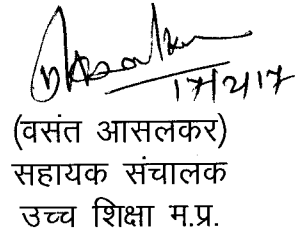 17/2/17
(वसंत आसलकर)
सहायक संचालक
उच्च शिक्षा म.प्र.